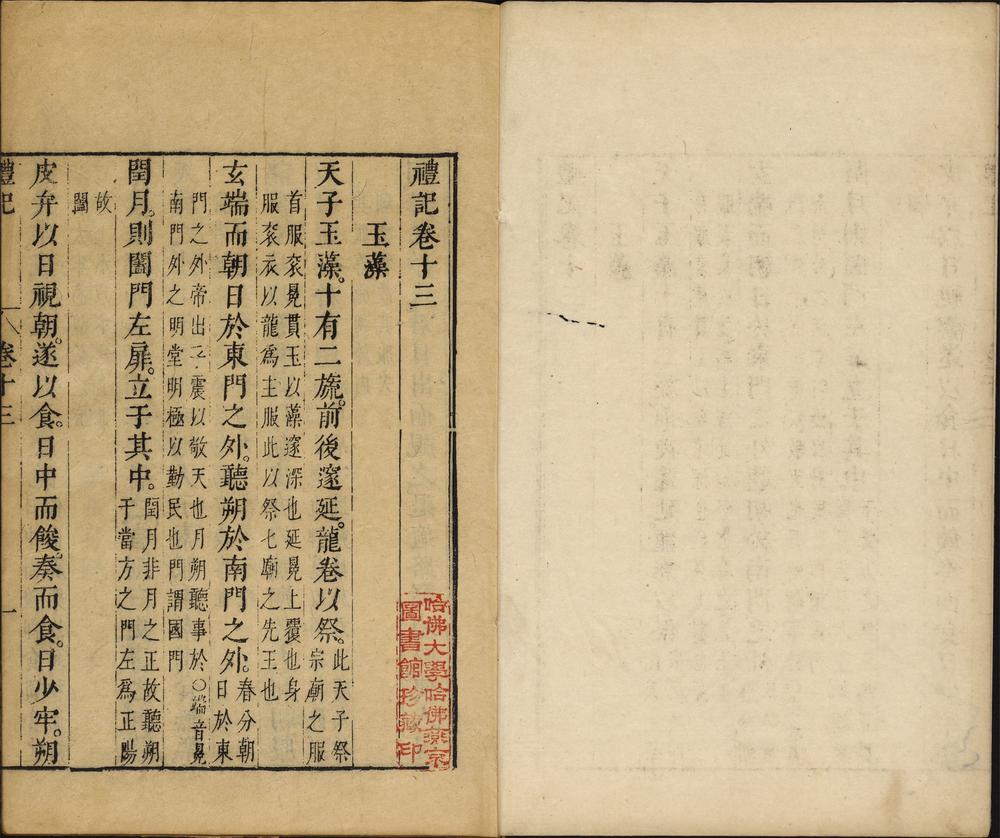 禮記卷十三
玉藻
天子玉藻。十有二旒。前後邃延。龍卷以祭。此天子祭
宗廟之服
首服衮冕貫玉以藻邃深也延冕上覆也身
服衮衣以龍爲主服此以祭七廟之先王也
玄端而朝日於東門之外。聽朔於南門之外。春分朝
日於東
門之外帝出乎震以敬天也月朔聽事於〇端音冕
南門外之明堂明極以勤民也門謂國門
閏月。則闔門左扉。立于其中。閏月非月之正故聽朔
于當方之門左爲正陽
故
闔
皮弁以日視朝。遂以食。日中而餕。奏而食。日少牢。朔
禮記
卷十三
一
哈佛大學哈佛燕京
圖書館珍藏印